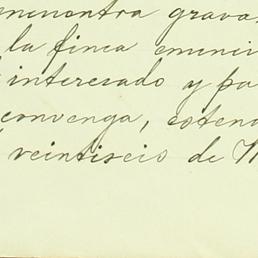 encuentra grava
la finca enunci
interesado y pa
convenga, estend
veintiseis de M